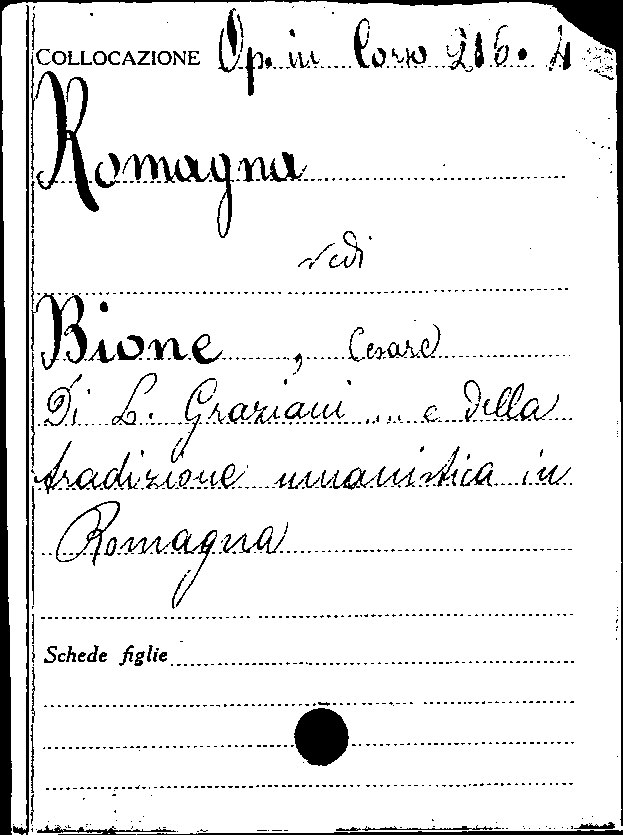 COLLOCAZIONE Op. in Corso 216. 4
Romagna
vedi
Bione, Cesare
Di L. Graziani ... e della
tradizione umanistica in
Romagna
Schede figlie